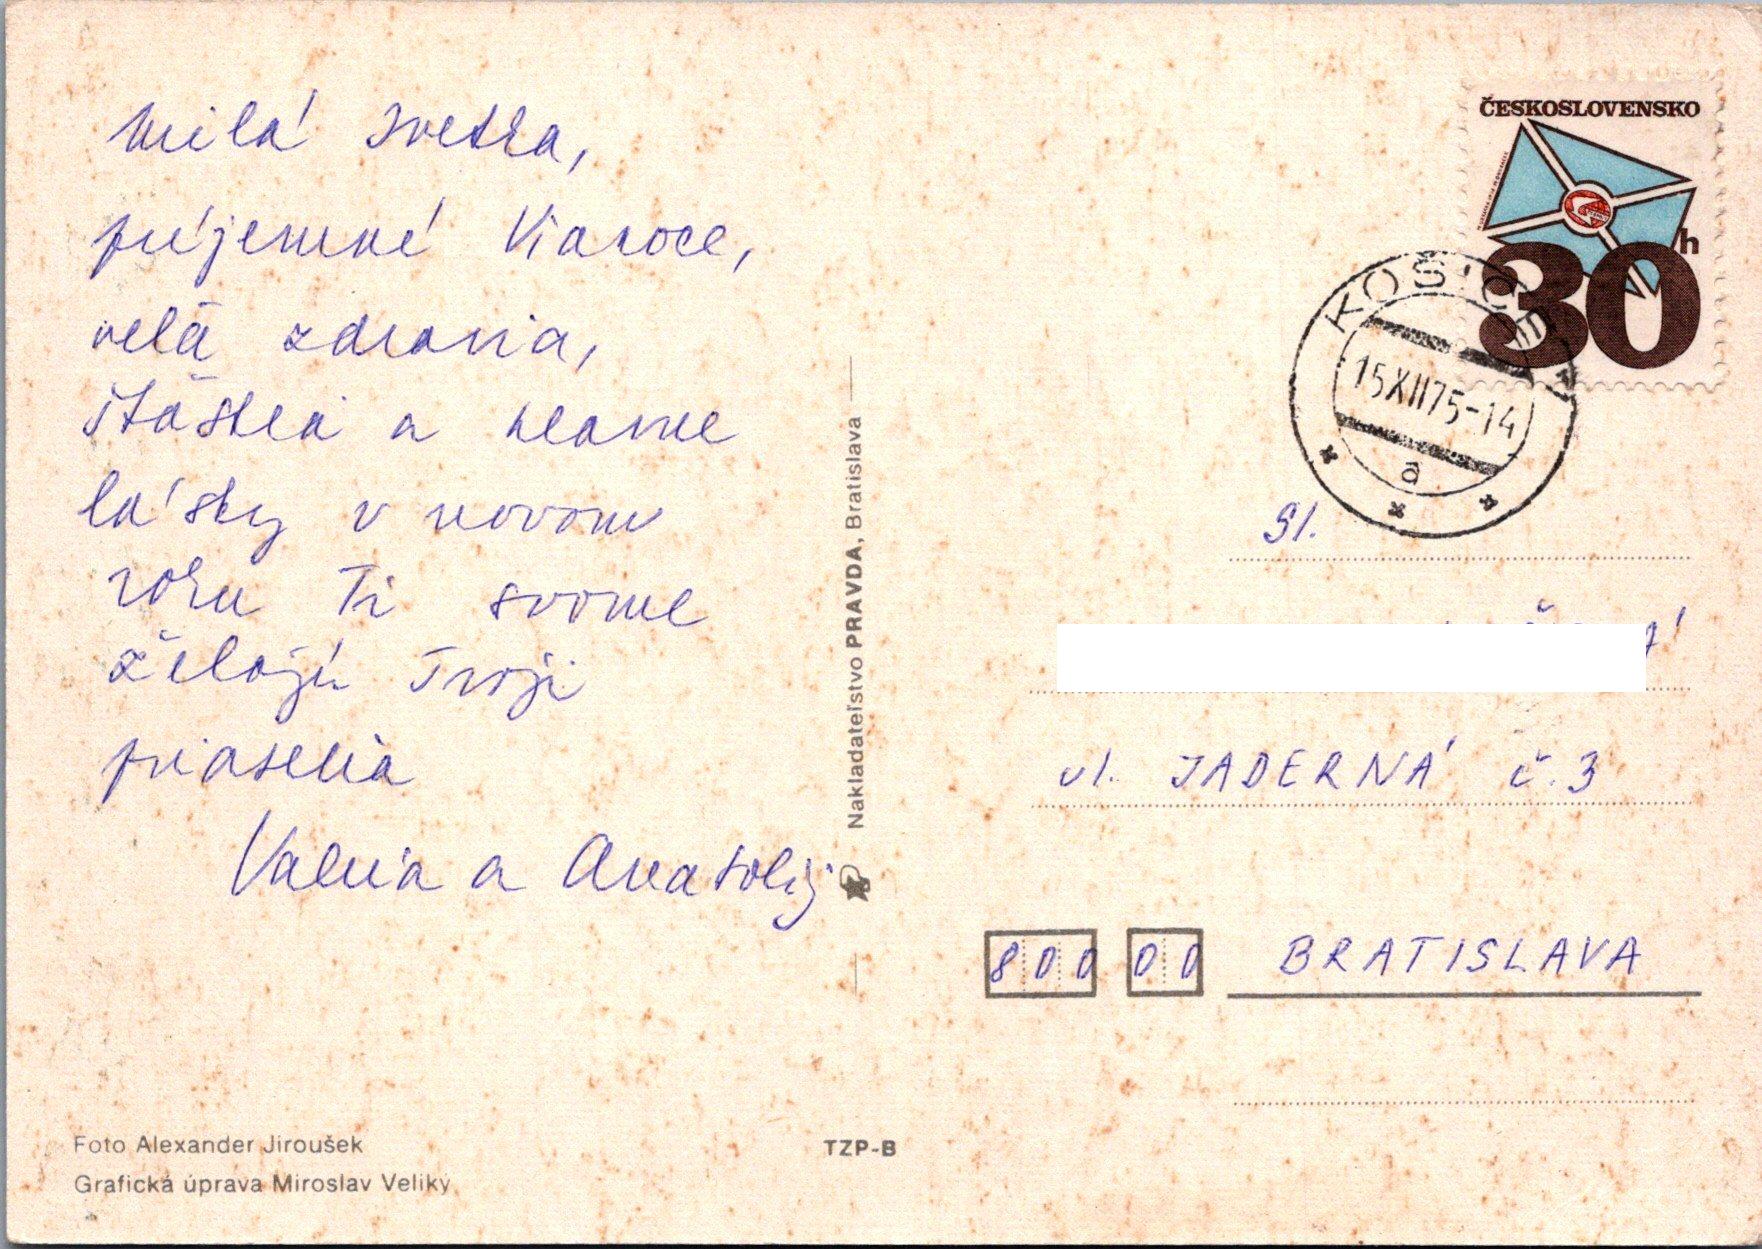 Milá Svetla,
príjemné Vianoce,
veľa zdravia,
šťastia a hlavne
lásky v novom
roku Ti srdečne
želajú Tvoji
priatelia
Valeria a Anatolij
Nakladateľstvo PRAVDA, Bratislava
ČESKOSLOVENSKO
30
h
15XII75-14
a
Sl.
ul. JADERNÁ č.3
800 00 BRATISLAVA
Foto Alexander Jiroušek
Grafická úprava Miroslav Veliký
TZP-B